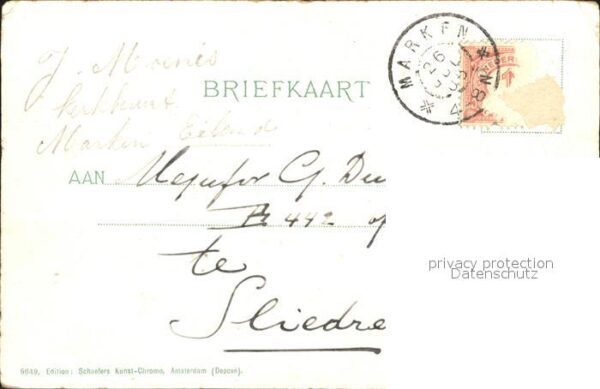 J. Moenis
Kerkbuurt
Marken Eiland
BRIEFKAART
MARKEN
26
4-8N
AAN Mejufvr G. Du
B 442 op
te
Sliedre
privacy protection
Datenschutz
6649, Edition: Schaefers Kunst-Chromo, Amsterdam (Depose).